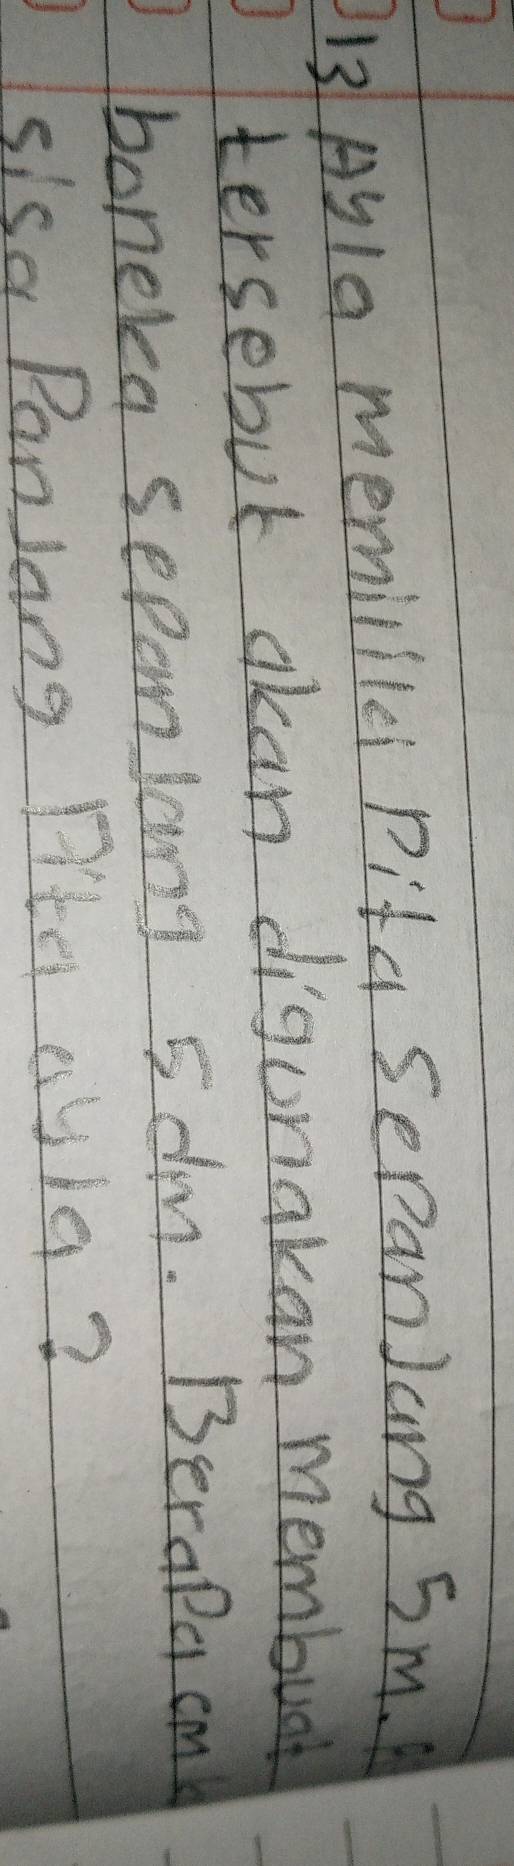 13 Ayla memiliki Pita SePanJang 5 m.
tersebut akan digunakan membuat
boneka sePanJang 5 dm. BeraPa cm
sisa PanJang Pita ayla?